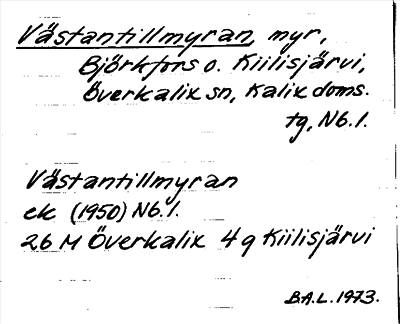 Västantillmyran, myr,
Björkfors o. Kiilisjärvi,
Överkalix sn, Kalix doms.
tg, Nb.l.
Västantillmyran
ek (1950) Nb.l.
26 M Överkalix 4 q Kiilisjärvi
B.A.L. 1973.